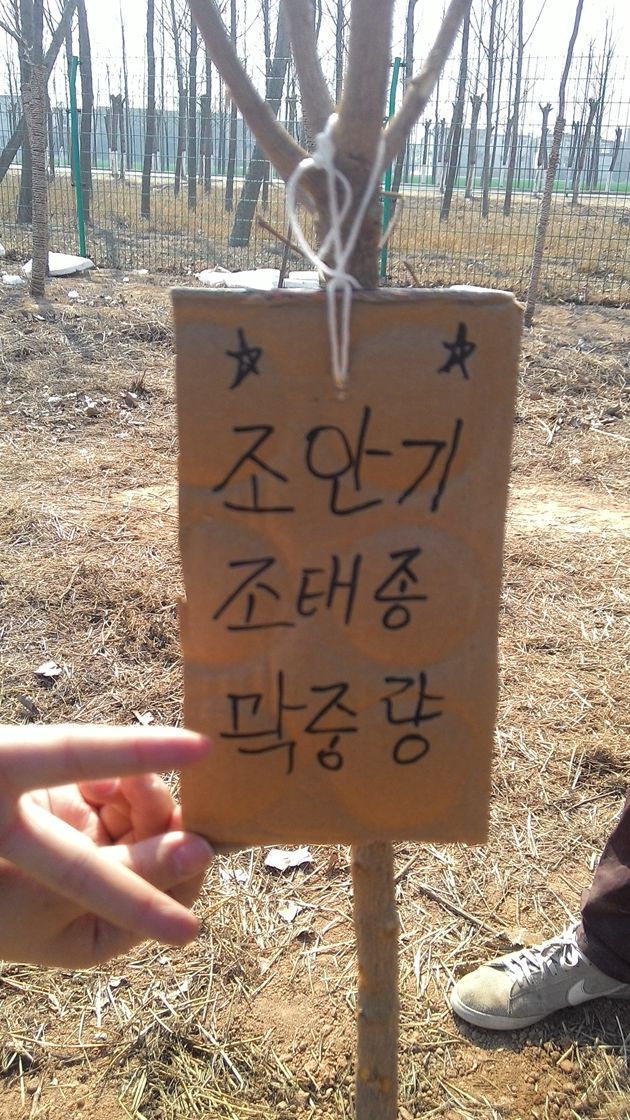 ☆ ☆
조안기
조태종
막중량